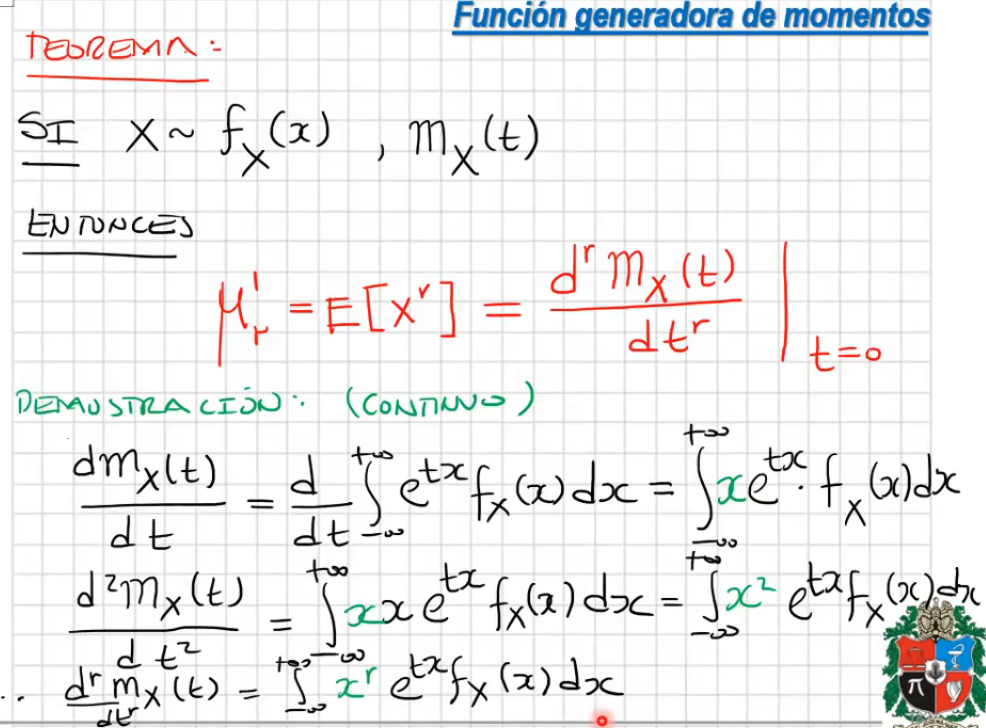 Función generadora de momentos
TEOREMA:
SI X ~ f_X(x) , m_X(t)
ENTONCES
μ'_r = E[X^r] = d^r m_X(t) / dt^r |_{t=0}
DEMOSTRACIÓN: (CONTINUO)
dm_X(t)/dt = d/dt ∫_{-∞}^{+∞} e^{tx} f_X(x) dx = ∫_{-∞}^{+∞} x e^{tx} · f_X(x) dx
d²m_X(t)/dt² = ∫_{-∞}^{+∞} x x e^{tx} f_X(x) dx = ∫_{-∞}^{+∞} x² e^{tx} f_X(x) dx
.. d^r m_X(t)/dt^r = ∫_{-∞}^{+∞} x^r e^{tx} f_X(x) dx
π